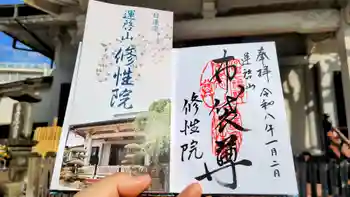 奉拝
令和八年一月二日
蓮啓山
布袋尊
修性院
蓮啓山
修性院